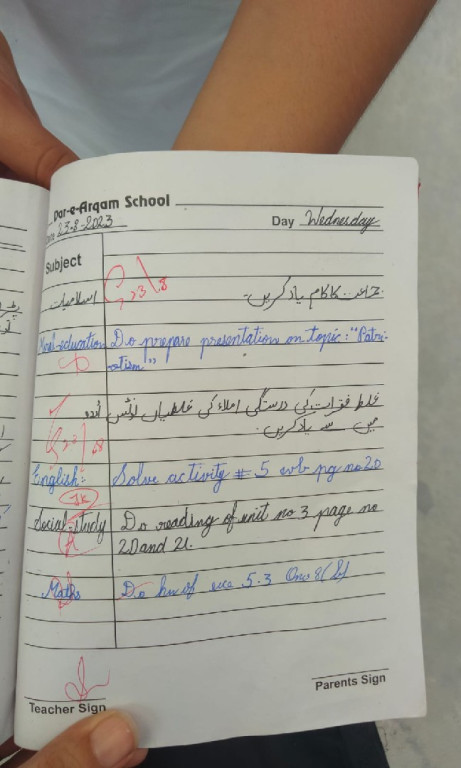 Dar-e-Arqam School
23-8-2023
Day Wednesday
Subject
اسلامیات کا کام یاد کریں۔
Moral education Do prepare presentation on topic: "Patri-
otism"
اُردو غلط فقرات کی درستگی املاء کی غلطیاں نوٹس
میں سے یاد کریں۔
English: Solve activity # 5 wb pg no 20
Social-study Do reading of unit no 3 page no
20 and 21.
Maths Do hw of exe 5.3 Qno 8
Parents Sign
Teacher Sign